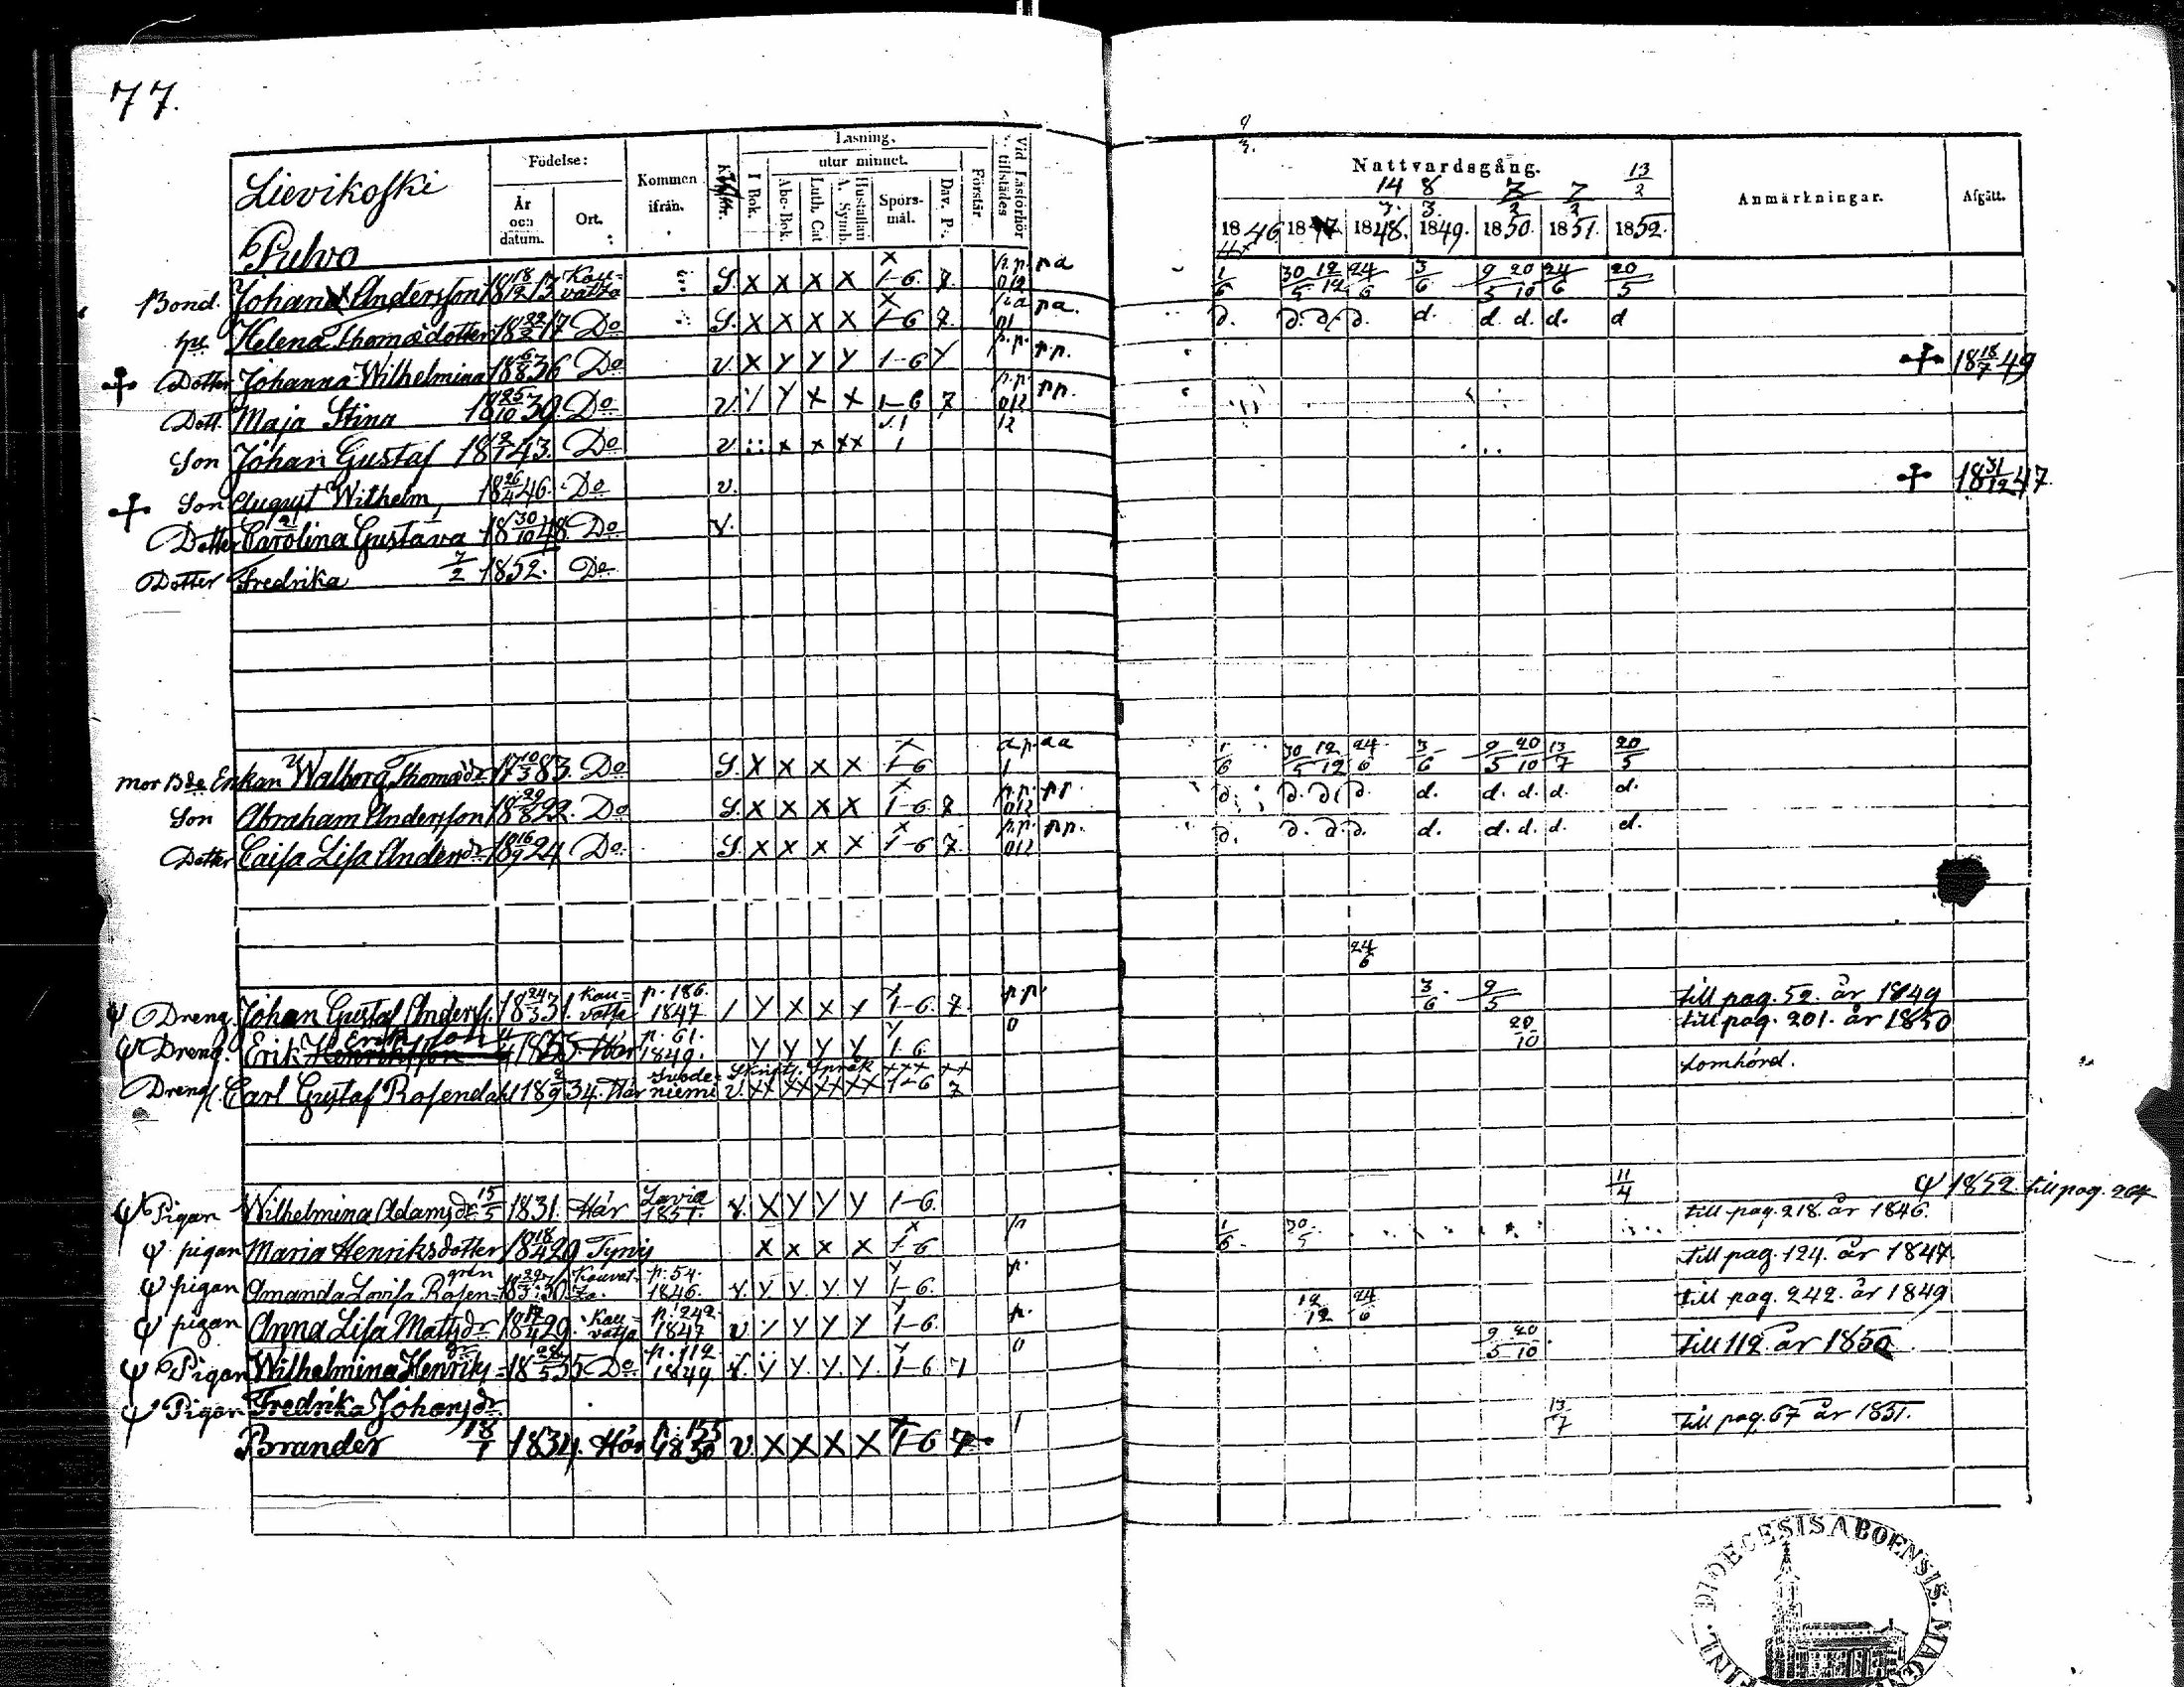 77.
Läsning.
Födelse:
utur minnet.
Nattvardsgång.
13/2
Lievikoski
Kommen ifrån.
I Bok.
Abc-Bok.
Luth. Cat
A. Symb.
Hustaflan
Spörsmål.
Dav. P.
Förstår
Vid Läsförhör tillstädes
14/3. 8/3. 7/2 7/2
Anmärkningar.
Afgått.
År och datum.
Ort.
Pulvo
1846. 1847. 1848. 1849. 1850. 1851. 1852.
Bond. Johan Andersson 18 18/12 13 Kauvatsa S. X X X X 1-6 7. 1/6 30/5 12/12 24/6 3/6 9/5 20/10 24/6 20/5
hu Helena Thomædotter 18 22/2 17 Do S. X X X X 1-6 7. d. d. d. d. d. d. d. d. d
Dotter Johanna Wilhelmina 18 6/8 36 Do v. X Y Y Y 1-6 Y p.p. 18 18/7 49
Dott. Maja Stina 18 25/10 39 Do v. / Y X X 1-6 7 p.p.
Son Johan Gustaf 18 43. Do v. x x xx 1
Son August Wilhelm, 18 26/4 46. Do v. 18 31/12 47.
Dotter Carolina Gustava 18 30/10 48. Do v.
Dotter Fredrika 7/2 1852. Do
mor Bde Enkan Walborg Thomædr 17 10/3 83. Do S. X X X X 1-6 1/6 30/5 12/12 24/6 3/6 9/5 20/10 13/7 20/5
Son Abraham Andersson 18 29/8 22. Do S. X X X X 1-6 7. p.p. d. d. d. d. d. d. d. d. d.
Dotter Caisa Lisa Andersdr 18 16/9 24 Do S. X X X X 1-6 7. p.p. d. d. d. d. d. d. d. d. d.
24/6
Dreng. Johan Gustaf Anders. 18 24/3 31. Kauvatsa p. 186. 1847 / Y X X Y 1-6. 7. p.p. 3/6. 9/5 till pag. 52. år 1849
Dreng. Erik Henriksson 1835. Här p. 61. 1849. Y Y Y Y 1-6. 0 20/10 till pag. 201. år 1850
Dreng. Carl Gustaf Rosendahl 18 2/9 34. Här v. xx xx xx xx 1-6 7 Lomhörd.
Pigan Wilhelmina Adamsdr 15/5 1831. Här Lavia 1851. v. X Y Y Y 1-6. 11/4 1852. till pag. 264
pigan Maria Henriksdotter 18 18/4 29 Tyrvis X X X X 1-6 p 1/6. 30/5 till pag. 218. år 1846.
pigan Amanda Lovisa Rosengrén 18 30. Kauvatsa. p. 54. 1846. v. Y Y. Y. Y 1-6. p. till pag. 124. år 1847.
pigan Anna Lisa Matsdr 18 17/4 29. Kauvatsa p. 242. 1847 v / Y Y Y 1-6. p. 12/12 24/6 till pag. 242. år 1849
Pigan Wilhelmina Henriksdr 18 28/5 35 Do p. 112. 1849 v. Y Y. Y. Y. 1-6 7 0 9/5 20/10 till 112. år 1850
Pigan Fredrika Johansdr
Brander 18/1 1834. Här p. 155 1850 v. X X X X 1-6 7 1 13/7 till pag. 67 år 1851.
DIOECESIS ABOENSIS. MAG
FINL.